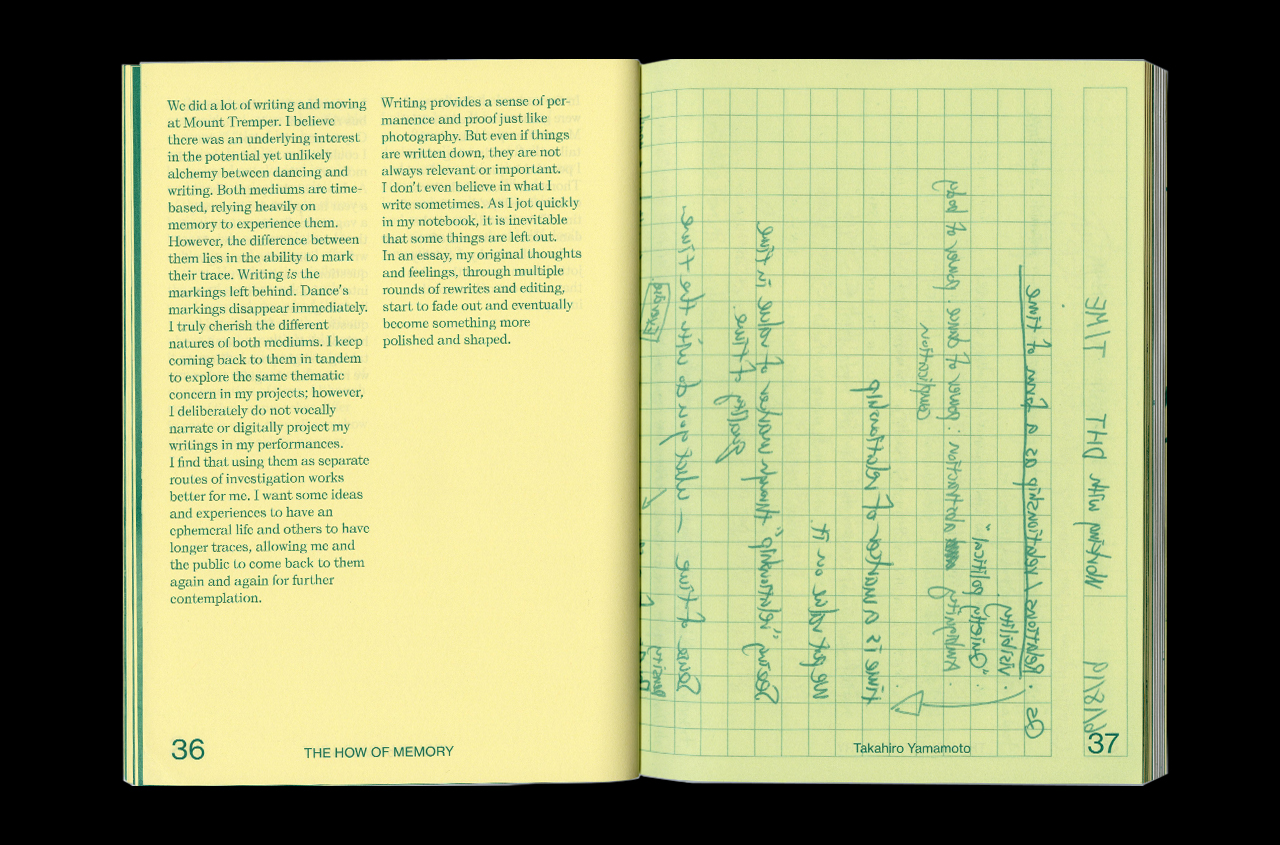 We did a lot of writing and moving
at Mount Tremper. I believe
there was an underlying interest
in the potential yet unlikely
alchemy between dancing and
writing. Both mediums are time-
based, relying heavily on
memory to experience them.
However, the difference between
them lies in the ability to mark
their trace. Writing is the
markings left behind. Dance's
markings disappear immediately.
I truly cherish the different
natures of both mediums. I keep
coming back to them in tandem
to explore the same thematic
concern in my projects; however,
I deliberately do not vocally
narrate or digitally project my
writings in my performances.
I find that using them as separate
routes of investigation works
better for me. I want some ideas
and experiences to have an
ephemeral life and others to have
longer traces, allowing me and
the public to come back to them
again and again for further
contemplation.
Writing provides a sense of per-
manence and proof just like
photography. But even if things
are written down, they are not
always relevant or important.
I don't even believe in what I
write sometimes. As I jot quickly
in my notebook, it is inevitable
that some things are left out.
In an essay, my original thoughts
and feelings, through multiple
rounds of rewrites and editing,
start to fade out and eventually
become something more
polished and shaped.
36
THE HOW OF MEMORY
Working with DHT TIME
Relations / Relationship as a form of time
· Visibility
· "Quietly political"
· Ambiguity abstraction: power of dance. power of body
time is a marker of relationship
we put value on it.
Seeing "relationship" through marker of value in time
Quality of time.
Sense of time — what you do with the time.
Exercise
Takahiro Yamamoto
37